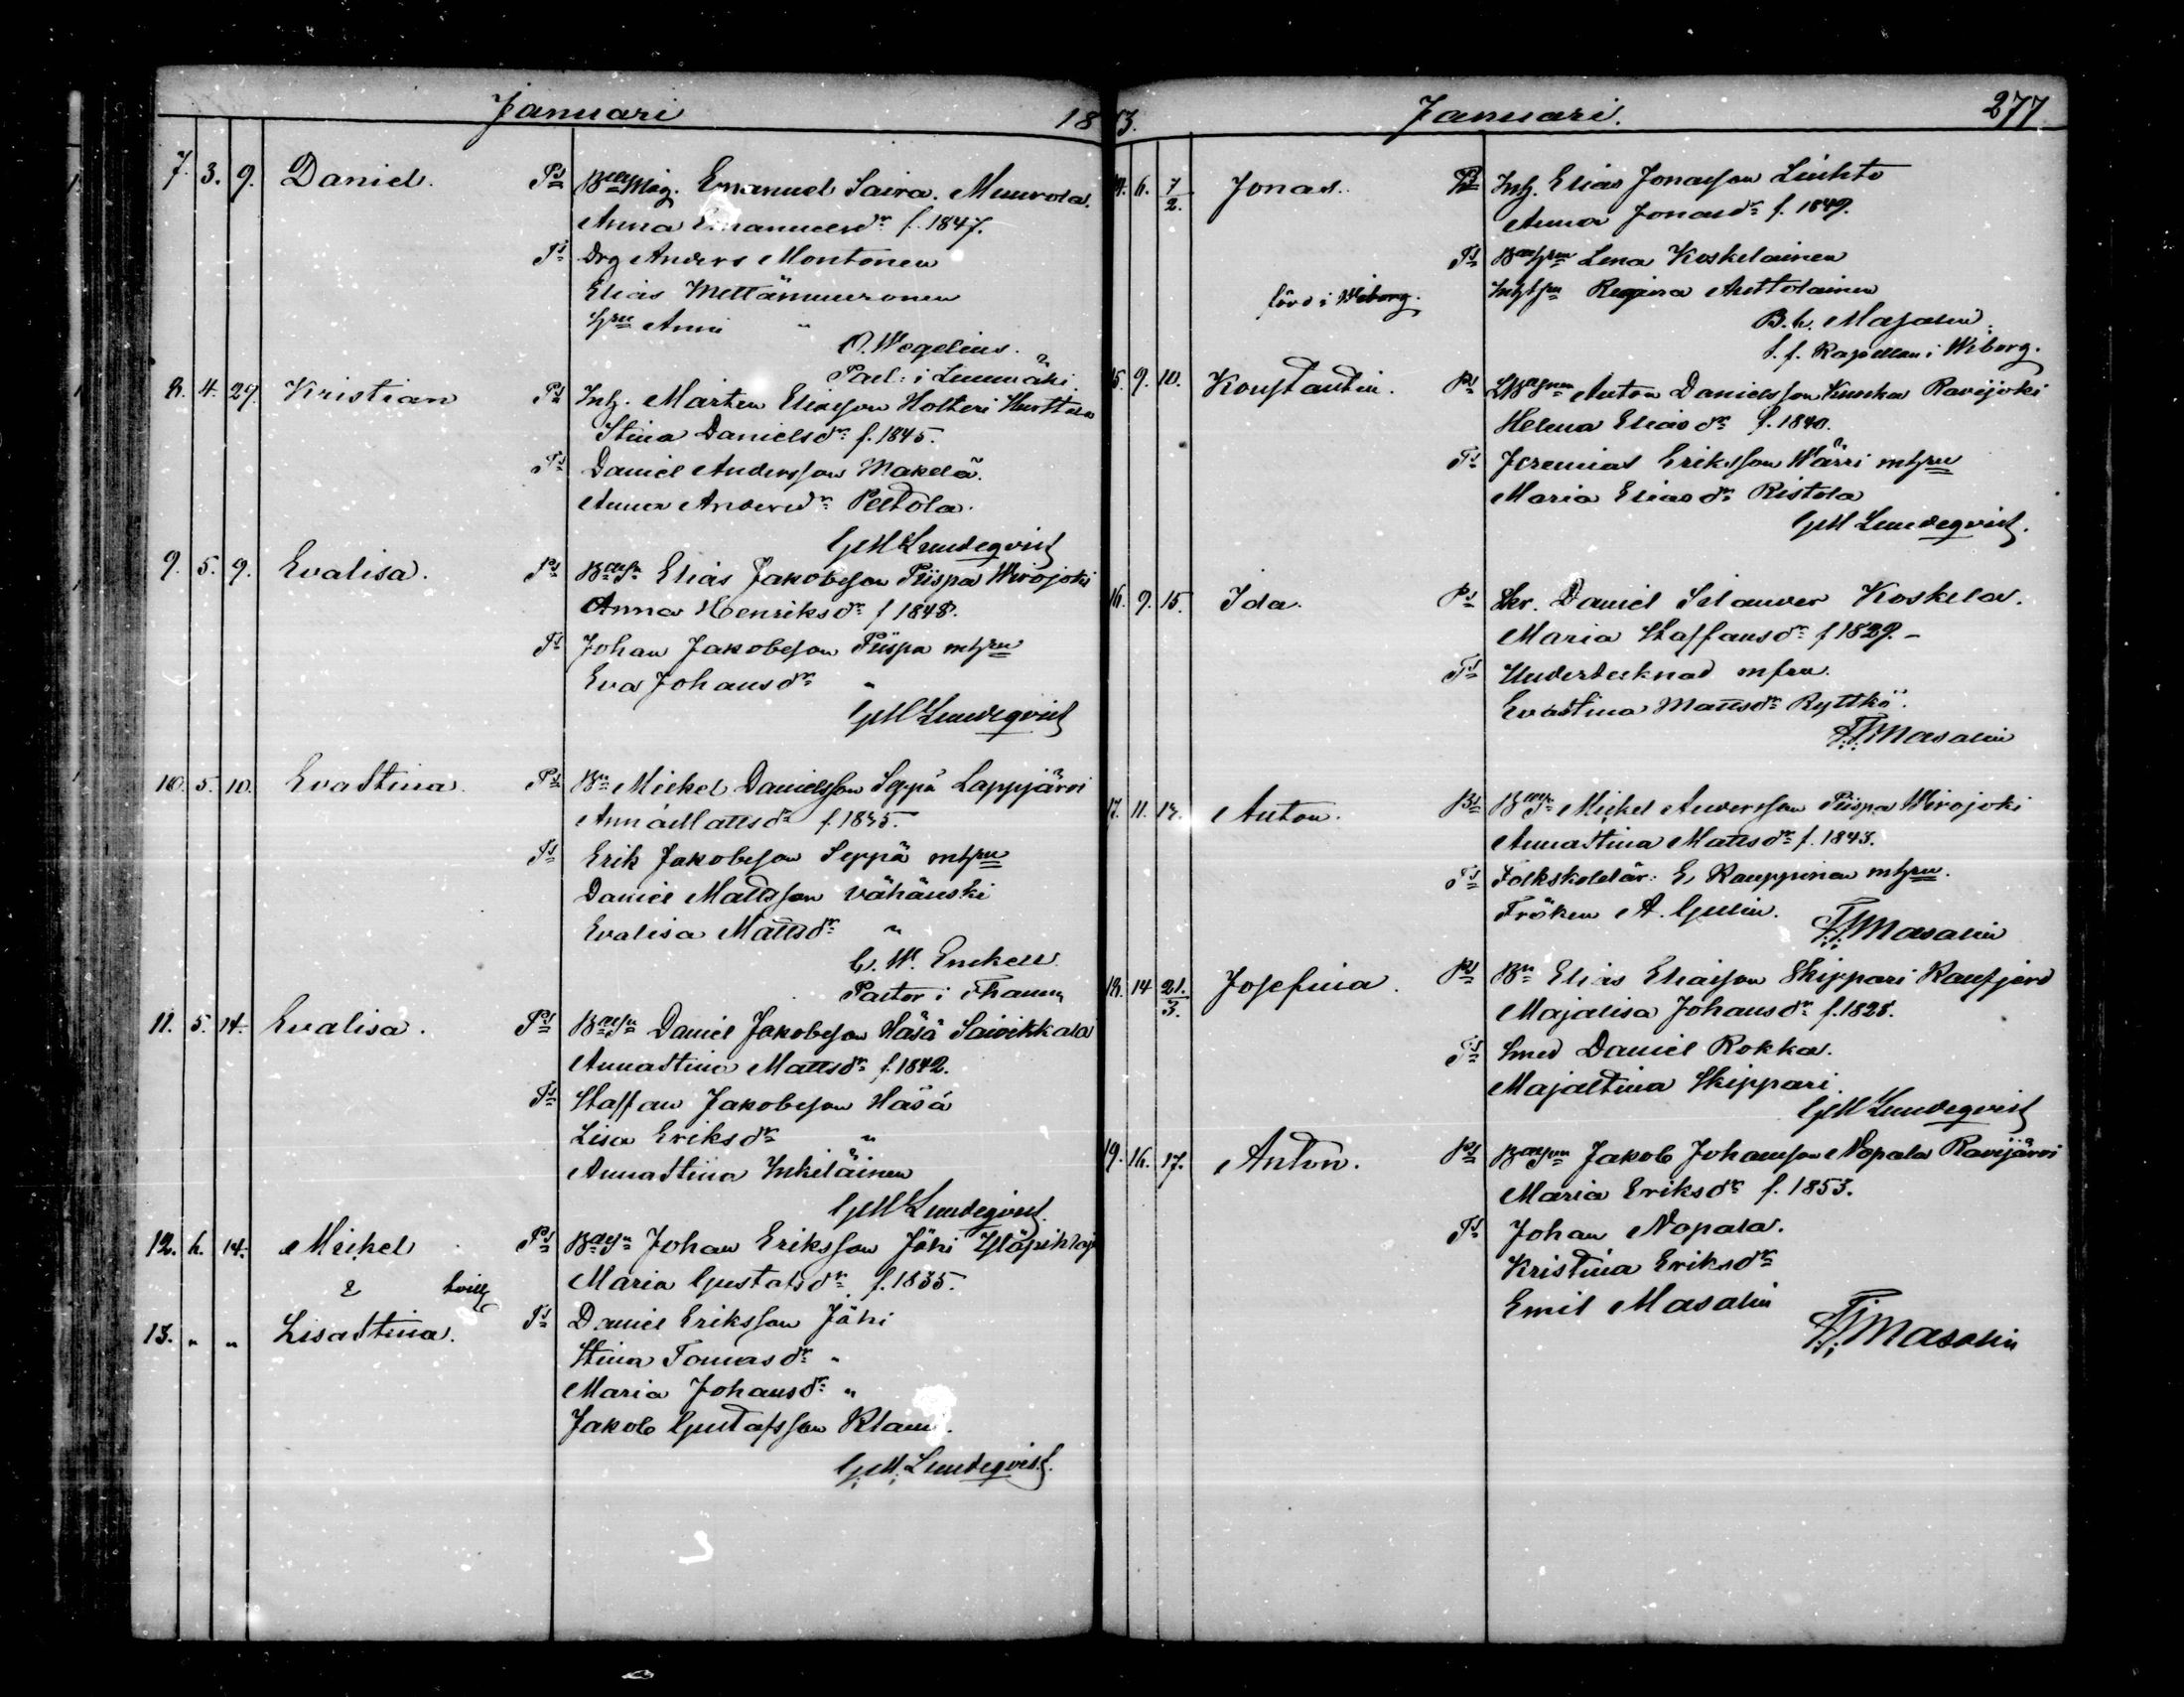 Januari 18
7. 3. 9. Daniel. Ps Emanuel Saira. Muurola.
Anna Emanuelsdr f. 1847.
Ts Drg Anders Montonen
Elias Mettänmuuronen
Hru Anni "
O. Wegelius.
Past: i Luumäki.
8. 4. 29. Kristian Ps Inh. Mårten Eliasson Holteri Hurttala
Stina Danielsdr f. 1845.
Ts Daniel Andersson Makelä.
Anna Andersdr Peltola.
GM Lundeqvist
9. 5. 9. Evalisa. Ps Elias Jakobsson Piispa Wirojoki
Anna Henriksdr f 1848.
Ts Johan Jakobsson Piispa mhru
Eva Johansdr "
GM Lundeqvist
10. 5. 10. Evastina. Ps Bn Mickel Danielsson Seppä Lappjärvi
Anna Mattsdr f. 1835.
Ts Erik Jakobsson Seppä mhru
Daniel Mattsson Vähänski
Evalisa Mattsdr "
C. W. Enckell
Pastor i
11. 5. 14. Evalisa. Ps Daniel Jakobsson Häsä Saivikkala
Annastina Mattsdr f. 1842.
Ts Staffan Jakobsson Häsä
Lisa Eriksdr "
Annastina Inkiläinen
GM Lundeqvist.
12. 6. 14. Mickel Ps Johan Eriksson Jähi
& tvill Maria Gustafsdr f. 1835.
13. " " Lisastina. Ts Daniel Eriksson Jähi
Stina Tomasdr "
Maria Johansdr "
Jakob Gustafsson Klami.
GM. Lundeqvist.
53. Januari. 277
14. 6. 7/2. Jonas. Ps Inh. Elias Jonasson Liuhto
Anna Jonasdr f. 1849.
Ts Lena Koskelainen
förd i Wiborg. Regina Anttolainen
B. h. Masalin.
S. f. Kapellan i Wiborg.
15. 9. 10. Konstantin. Ps Anton Danielsson Kunka Ravijoki
Helena Eliasdr f. 1840.
Ts Jeremias Eriksson Wärri mhru
Maria Eliasdr Ristola
GM Lundeqvist.
16. 9. 15. Ida. Ps Skr. Daniel Selander Koskela.
Maria Staffansdr f 1829. -
Ts Undertecknad mfru.
Evastina Mattsdr Ryttkö.
Masalin
17. 11. 14. Anton. Ps Mickel Andersson Piispa Wirojoki
Annastina Mattsdr f. 1843.
Ts Folkskolelär: E. Kauppinen mhru.
Fröken A. Gulin.
Masalin
18. 14 21./3. Josefina. Ps Bn Elias Eliasson Skippari
Majalisa Johansdr f. 1828.
Ts Smed Daniel Rokka.
Majastina Skippari.
GM Lundeqvist
19. 16. 17. Anton. Ps Jakob Johansson Nopala Ravijärvi
Maria Eriksdr f. 1853.
Ts Johan Nopala.
Kristina Eriksdr
Emil Masalin
Masalin